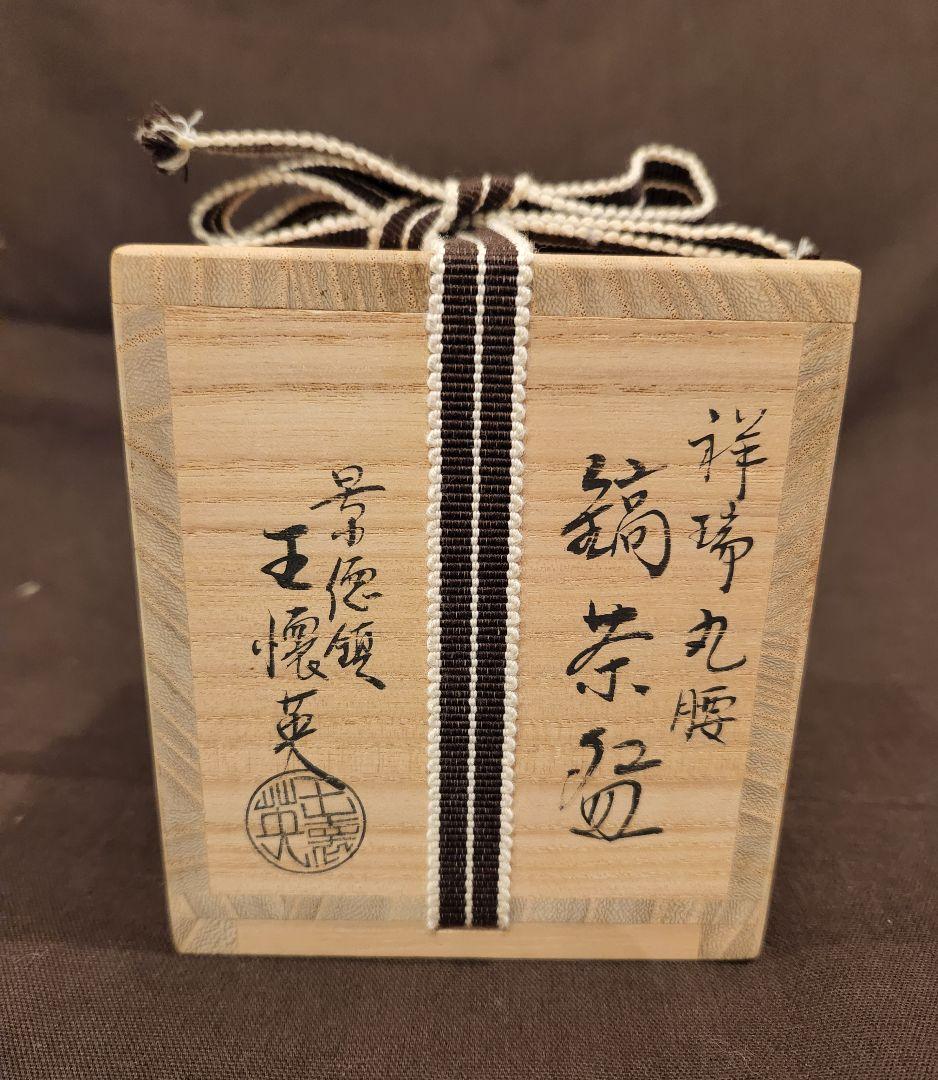 祥瑞丸腰
鎬茶碗
景德鎮
王懐英